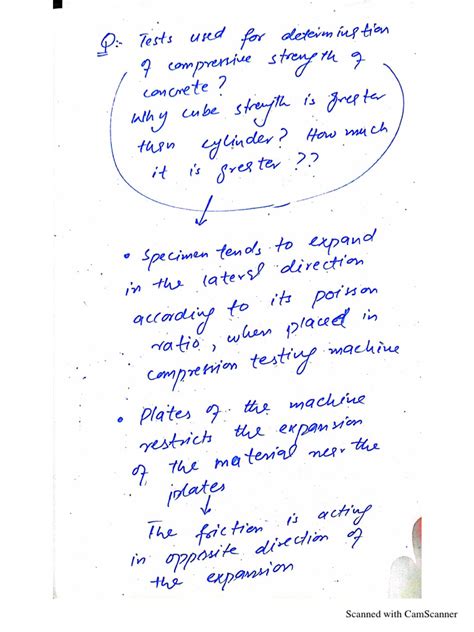 Q:- Tests used for determination
of compressive strength of
concrete?
Why cube strength is greater
then cylinder? How much
it is greater??
• Specimen tends to expand
in the lateral direction
according to its poisson
ratio, when placed in
compression testing machine
• Plates of the machine
restricts the expansion
of the material near the
plates
The friction is acting
in opposite direction of
the expansion
Scanned with CamScanner